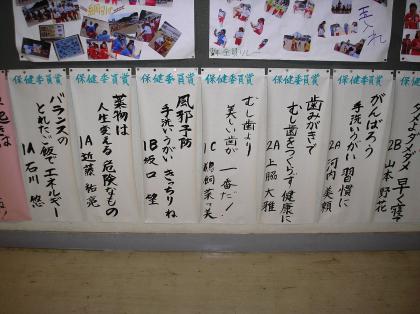 保健委員賞
ダメダメ 早く寝て
2B 山本 野花
保健委員賞
がんばろう
手洗いうがい 習慣に
2A 河内 美穎
保健委員賞
歯みがきで
むし歯をつくらず健康に
2A 上脇 大雅
保健委員賞
むし歯より
美しい歯が 一番だ!
1C 鵜飼 菜々美
保健委員賞
風邪予防
手洗いうがい きっちりね
1B 坂口 望
保健委員賞
薬物は
人生変える 危険なもの
1A 近藤 祐亮
保健委員賞
バランスの
とれたご飯で エネルギー
1A 石川 悠